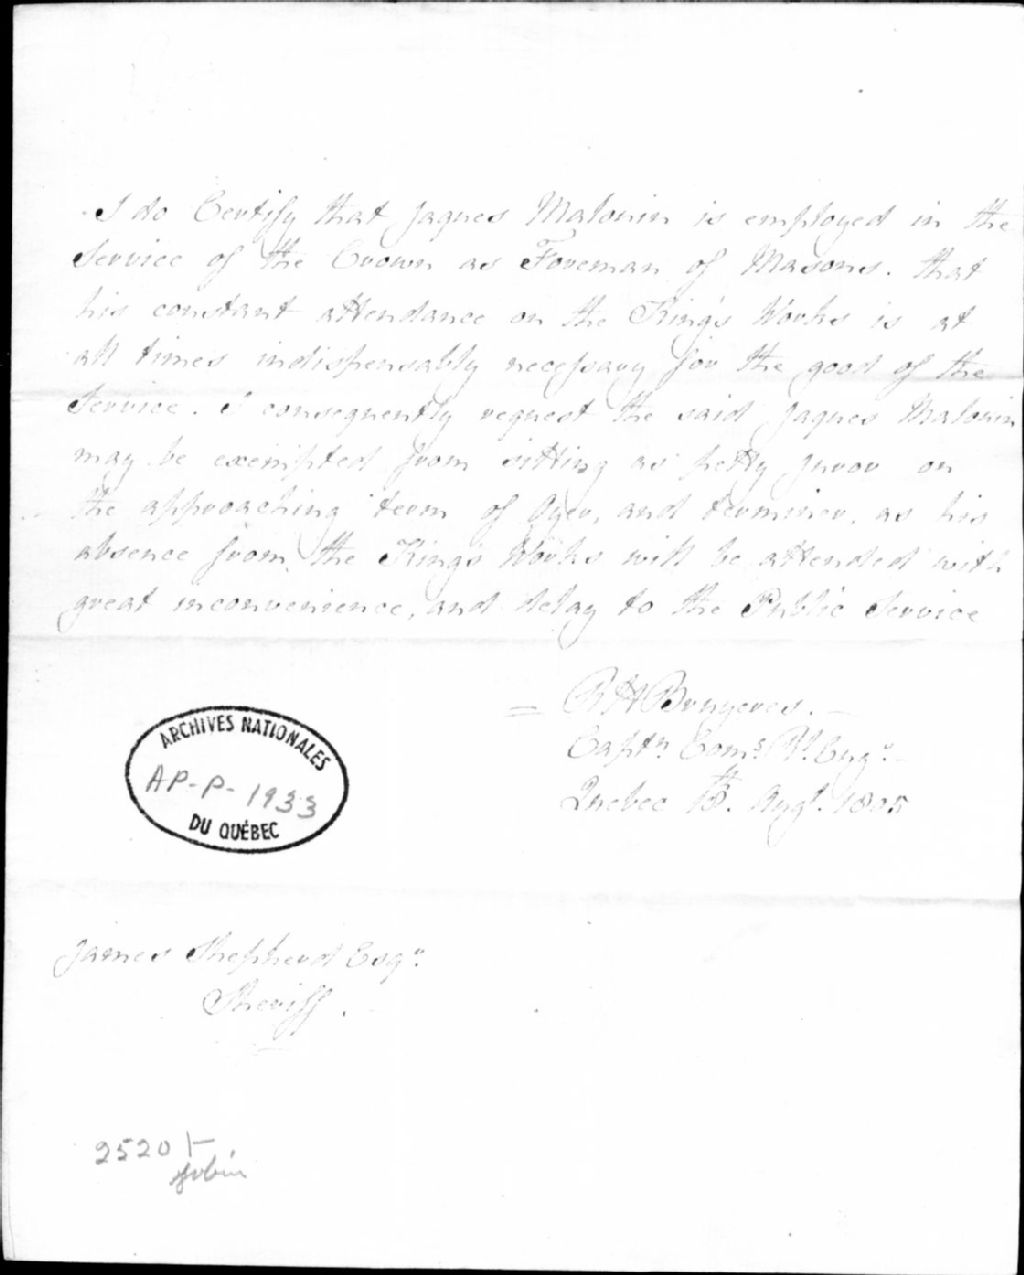 I do Certify that Jaques Malouin is employed in the
Service of the Crown as Foreman of Masons. that
his constant attendance on the King's Works is at
all times indispensably necessary for the good of the
Service. I consequently request the said Jaques Malouin
may be exempted from sitting as petty juror on
the approaching term of Oyer, and terminer, as his
absence from the Kings Works will be attended with
great inconvenience, and delay to the Public Service
R H Bruyeres.
Captn. Coms. Rl. Engs.
Quebec 13th. Augt. 1805
ARCHIVES NATIONALES
AP-P-1933
DU QUÉBEC
James Shepherd Esqr.
Sheriff.
2520